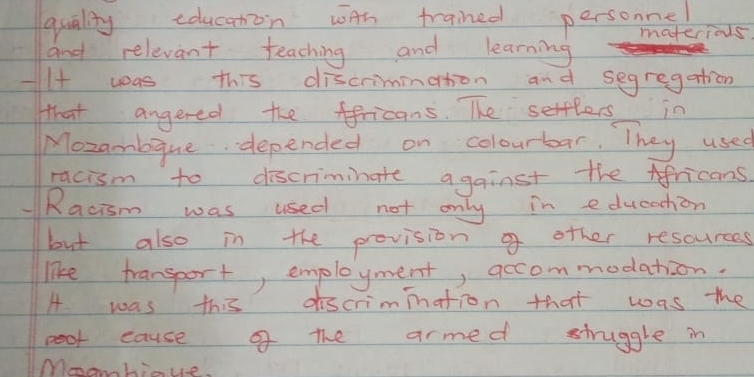 quality education with trained personnel
and relevant teaching and learning materials.
- It was this discrimination and segregation
that angered the Africans. The settlers in
Mozambique depended on colourbar. They used
racism to discriminate against the Africans.
- Racism was used not only in education
but also in the provision of other resources
like transport, employment, accommodation.
It was this discrimination that was the
root cause of the armed struggle in
Mozambique.